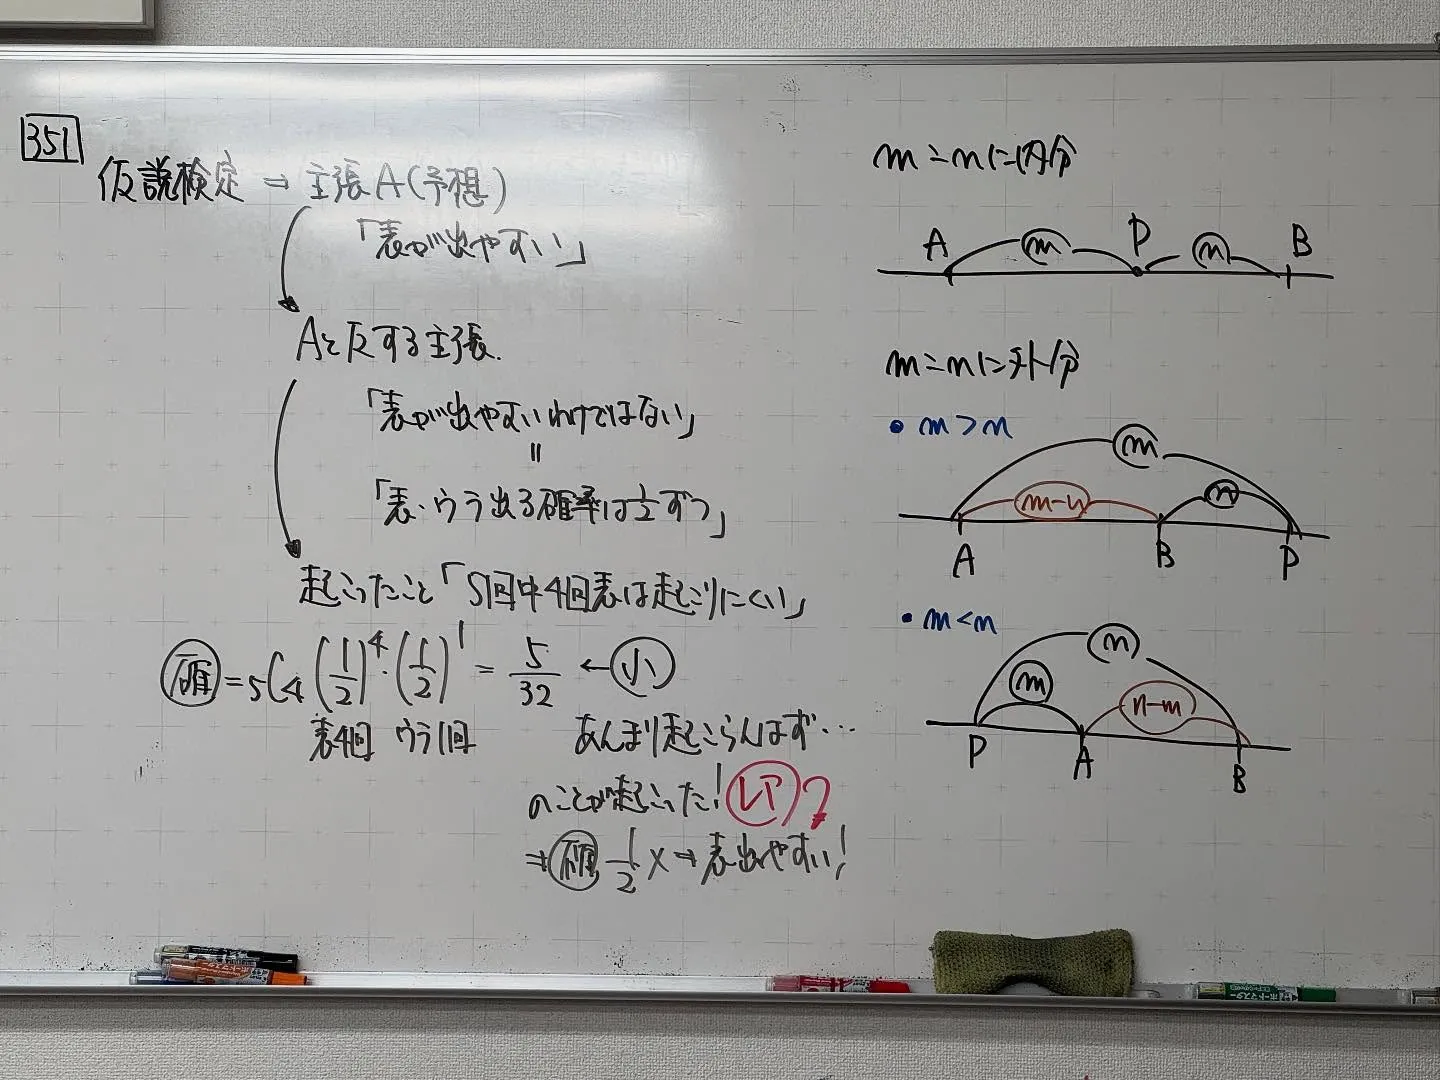 351
仮説検定 ⇒ 主張A(予想)
「表が出やすい」
Aと反する主張.
「表が出やすいわけではない」
=
「表・ウラ出る確率は1/2ずつ」
起こったこと「5回中4回表は起こりにくい」
確 = 5C4 (1/2)^4・(1/2)^1 = 5/32 ← 小
表4回 ウラ1回
あんまり起こらんはず…
のことが起こった! レア?
⇒ 確 1/2 × → 表出やすい!
m:nに内分
A m P n B
m:nに外分
• m>n
m
m-n n
A B P
• m<n
n
m n-m
P A B
ボードマスター
ボードマスター